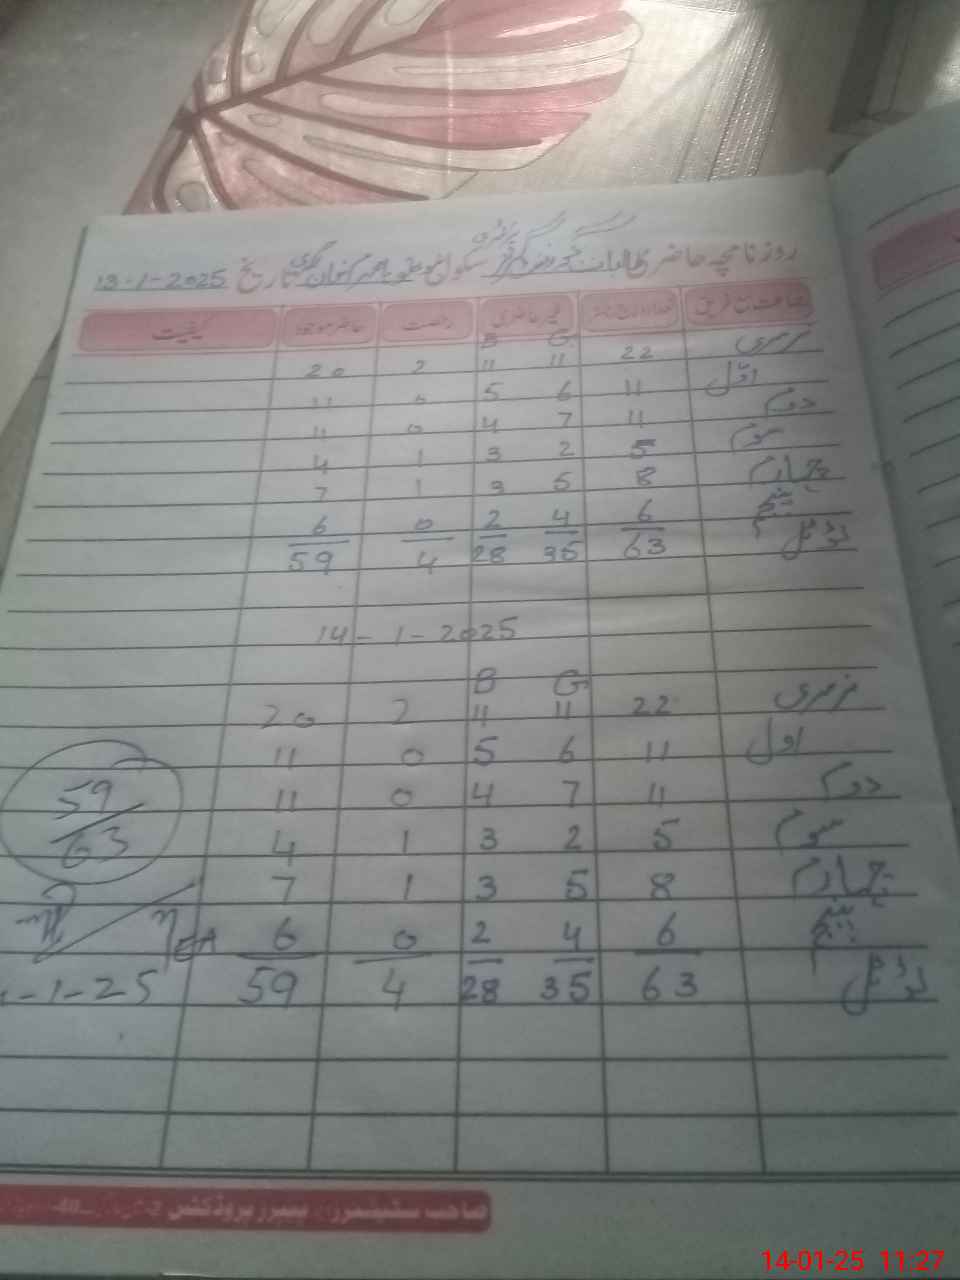 روزنامچہ حاضری طالبات گورنمنٹ پرائمری سکول تاریخ 13-1-2025
جماعت مع فریق تعداد درج رجسٹر غیر حاضری رخصت حاضر موجود کیفیت
B G
نرسری 22 11 11 2 20
اوّل 11 6 5 0 11
دوم 11 7 4 0 11
سوم 5 2 3 1 4
چہارم 8 5 3 1 7
پنجم 6 4 2 0 6
ٹوٹل 63 35 28 4 59
14-1-2025
B G
نرسری 22 11 11 2 20
اول 11 6 5 0 11
دوم 11 7 4 0 11
سوم 5 2 3 1 4
چہارم 8 5 3 1 7
پنجم 6 4 2 0 6
ٹوٹل 63 35 28 4 59
59
63
MEA
-1-25
صاحب سٹیشنرز اینڈ پیپرز پروڈکٹس
14-01-25 11:27